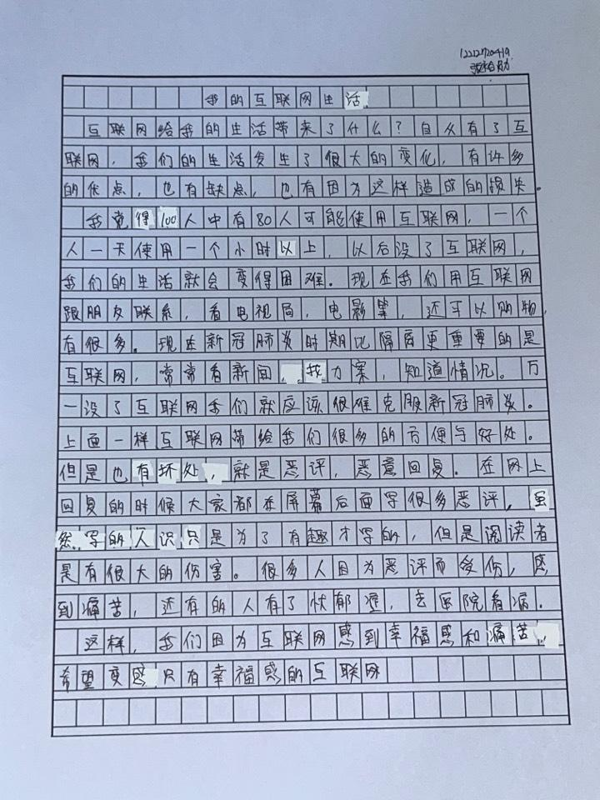 我的互联网生活
互联网给我的生活带来了什么？自从有了互
联网，我们的生活发生了很大的变化，有许多
的优点，也有缺点，也有因为这样造成的损失。
我觉得100人中有80人可能使用互联网，一个
人一天使用一个小时以上，以后没了互联网，
我们的生活就会变得困难。现在我们用互联网
跟朋友联系，看电视局，电影等，还可以购物，
有很多。现在新冠肺炎时期比隔离更重要的是
互联网，常常看新闻，找方案，知道情况。万
一没了互联网我们就应该很难克服新冠肺炎。
上面一样互联网带给我们很多的方便与好处。
但是也有坏处，就是恶评，恶意回复。在网上
回复的时候大家都在屏幕后面写很多恶评，虽
然写的人识只是为了有趣才写的，但是阅读者
是有很大的伤害。很多人因为恶评而受伤，感
到痛苦，还有的人有了忧郁症，去医院看病。
这样，我们因为互联网感到幸福感和痛苦，
希望变感只有幸福感的互联网